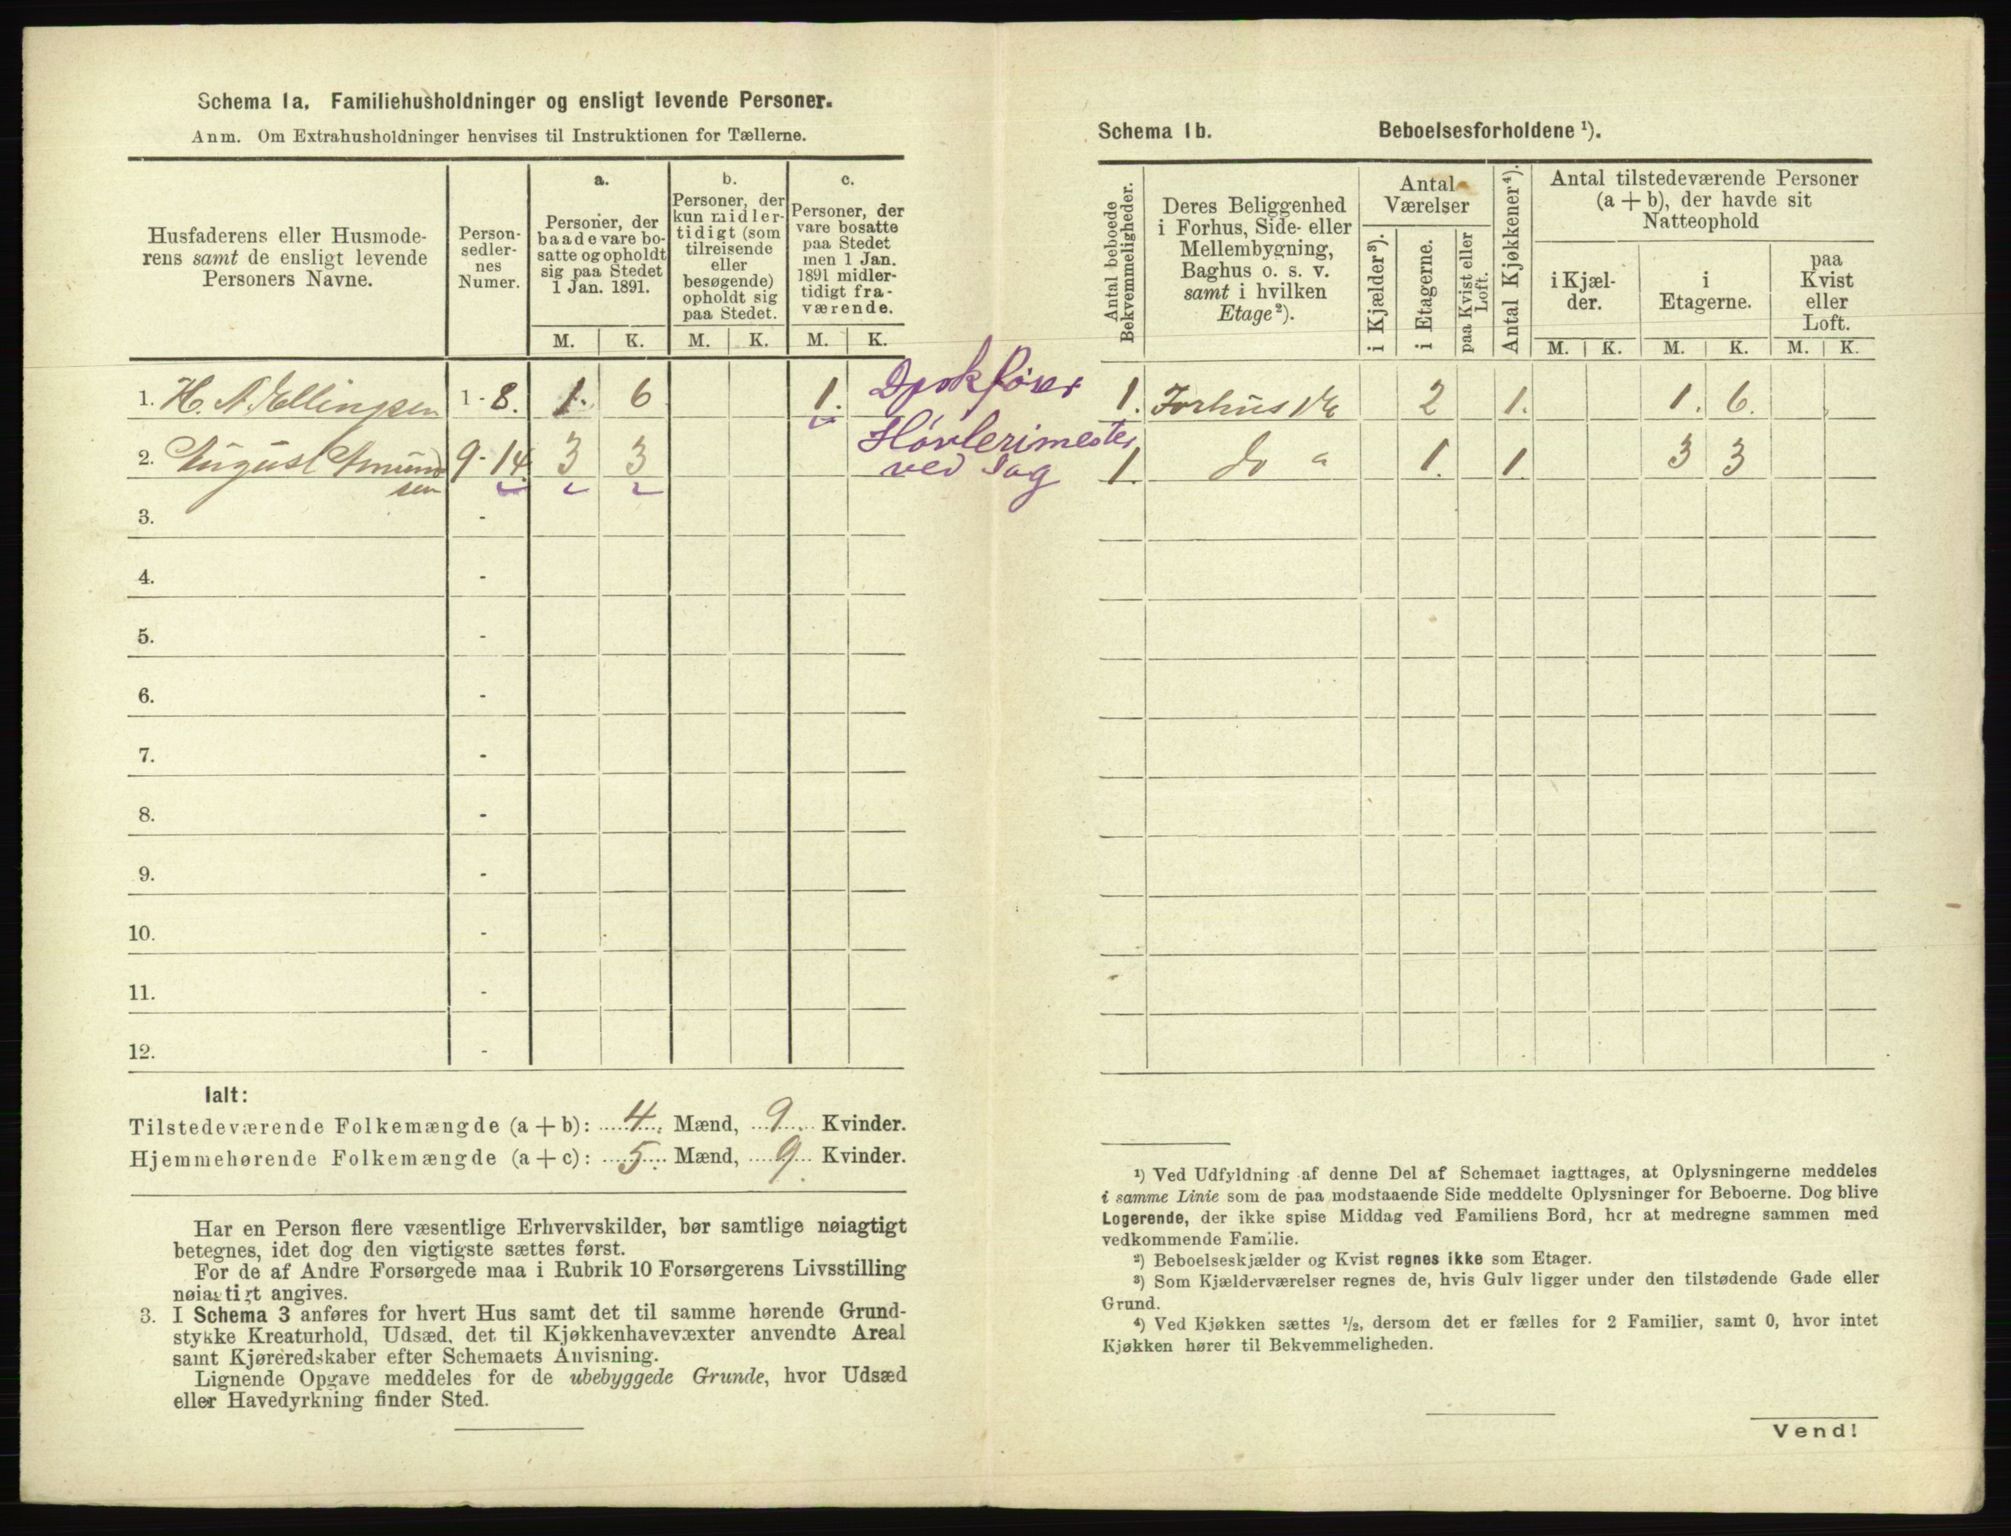 Schema 1a. Familiehusholdninger og ensligt levende Personer.
Anm. Om Extrahusholdninger henvises til Instruktionen for Tællerne.
Husfaderens eller Husmode-
rens samt de ensligt levende
Personers Navne.
Person-
sedler-
nes
Numer.
a.
Personer, der
baade vare bo-
satte og opholdt
sig paa Stedet
1 Jan. 1891.
b.
Personer, der
kun midler-
tidigt (som
tilreisende
eller
besøgende)
opholdt sig
paa Stedet.
c.
Personer, der
vare bosatte
paa Stedet
men 1 Jan.
1891 midler-
tidigt fra-
værende.
M. K. M. K. M. K.
1. H. A. Ellingsen 1 - 8. 1. 6 1.
2. August Amund 9 - 14. 3 3
sen
Høvlerimester
ved Sag
3. -
4. -
5. -
6. -
7. -
8. -
9. -
10. -
11. -
12. -
Ialt:
Tilstedeværende Folkemængde (a + b): 4 Mænd, 9 Kvinder.
Hjemmehørende Folkemængde (a + c): 5 Mænd, 9 Kvinder.
Har en Person flere væsentlige Erhvervskilder, bør samtlige nøiagtigt
betegnes, idet dog den vigtigste sættes først.
For de af Andre Forsørgede maa i Rubrik 10 Forsørgerens Livsstilling
nøiagtigt angives.
3. I Schema 3 anføres for hvert Hus samt det til samme hørende Grund-
stykke Kreaturhold, Udsæd, det til Kjøkkenhavevæxter anvendte Areal
samt Kjøreredskaber efter Schemaets Anvisning.
Lignende Opgave meddeles for de ubebyggede Grunde, hvor Udsæd
eller Havedyrkning finder Sted.
Schema 1b. Beboelsesforholdene ¹).
Antal beboede
Bekvemmeligheder.
Deres Beliggenhed
i Forhus, Side- eller
Mellembygning,
Baghus o. s. v.
samt i hvilken
Etage ²).
Antal
Værelser
i Kjælder ³).
i Etagerne.
paa Kvist eller
Loft.
Antal Kjøkkener ⁴).
Antal tilstedeværende Personer
(a + b), der havde sit
Natteophold
i Kjæl-
der.
i
Etagerne.
paa
Kvist
eller
Loft.
M. K. M. K. M. K.
1. Forhus 2 1. 1. 6.
1. do " 1. 1. 3 3
¹) Ved Udfyldning af denne Del af Schemaet iagttages, at Oplysningerne meddeles
i samme Linie som de paa modstaaende Side meddelte Oplysninger for Beboerne. Dog blive
Logerende, der ikke spise Middag ved Familiens Bord, her at medregne sammen med
vedkommende Familie.
²) Beboelseskjælder og Kvist regnes ikke som Etager.
³) Som Kjælderværelser regnes de, hvis Gulv ligger under den tilstødende Gade eller
Grund.
⁴) Ved Kjøkken sættes ½, dersom det er fælles for 2 Familier, samt 0, hvor intet
Kjøkken hører til Bekvemmeligheden.
Vend!